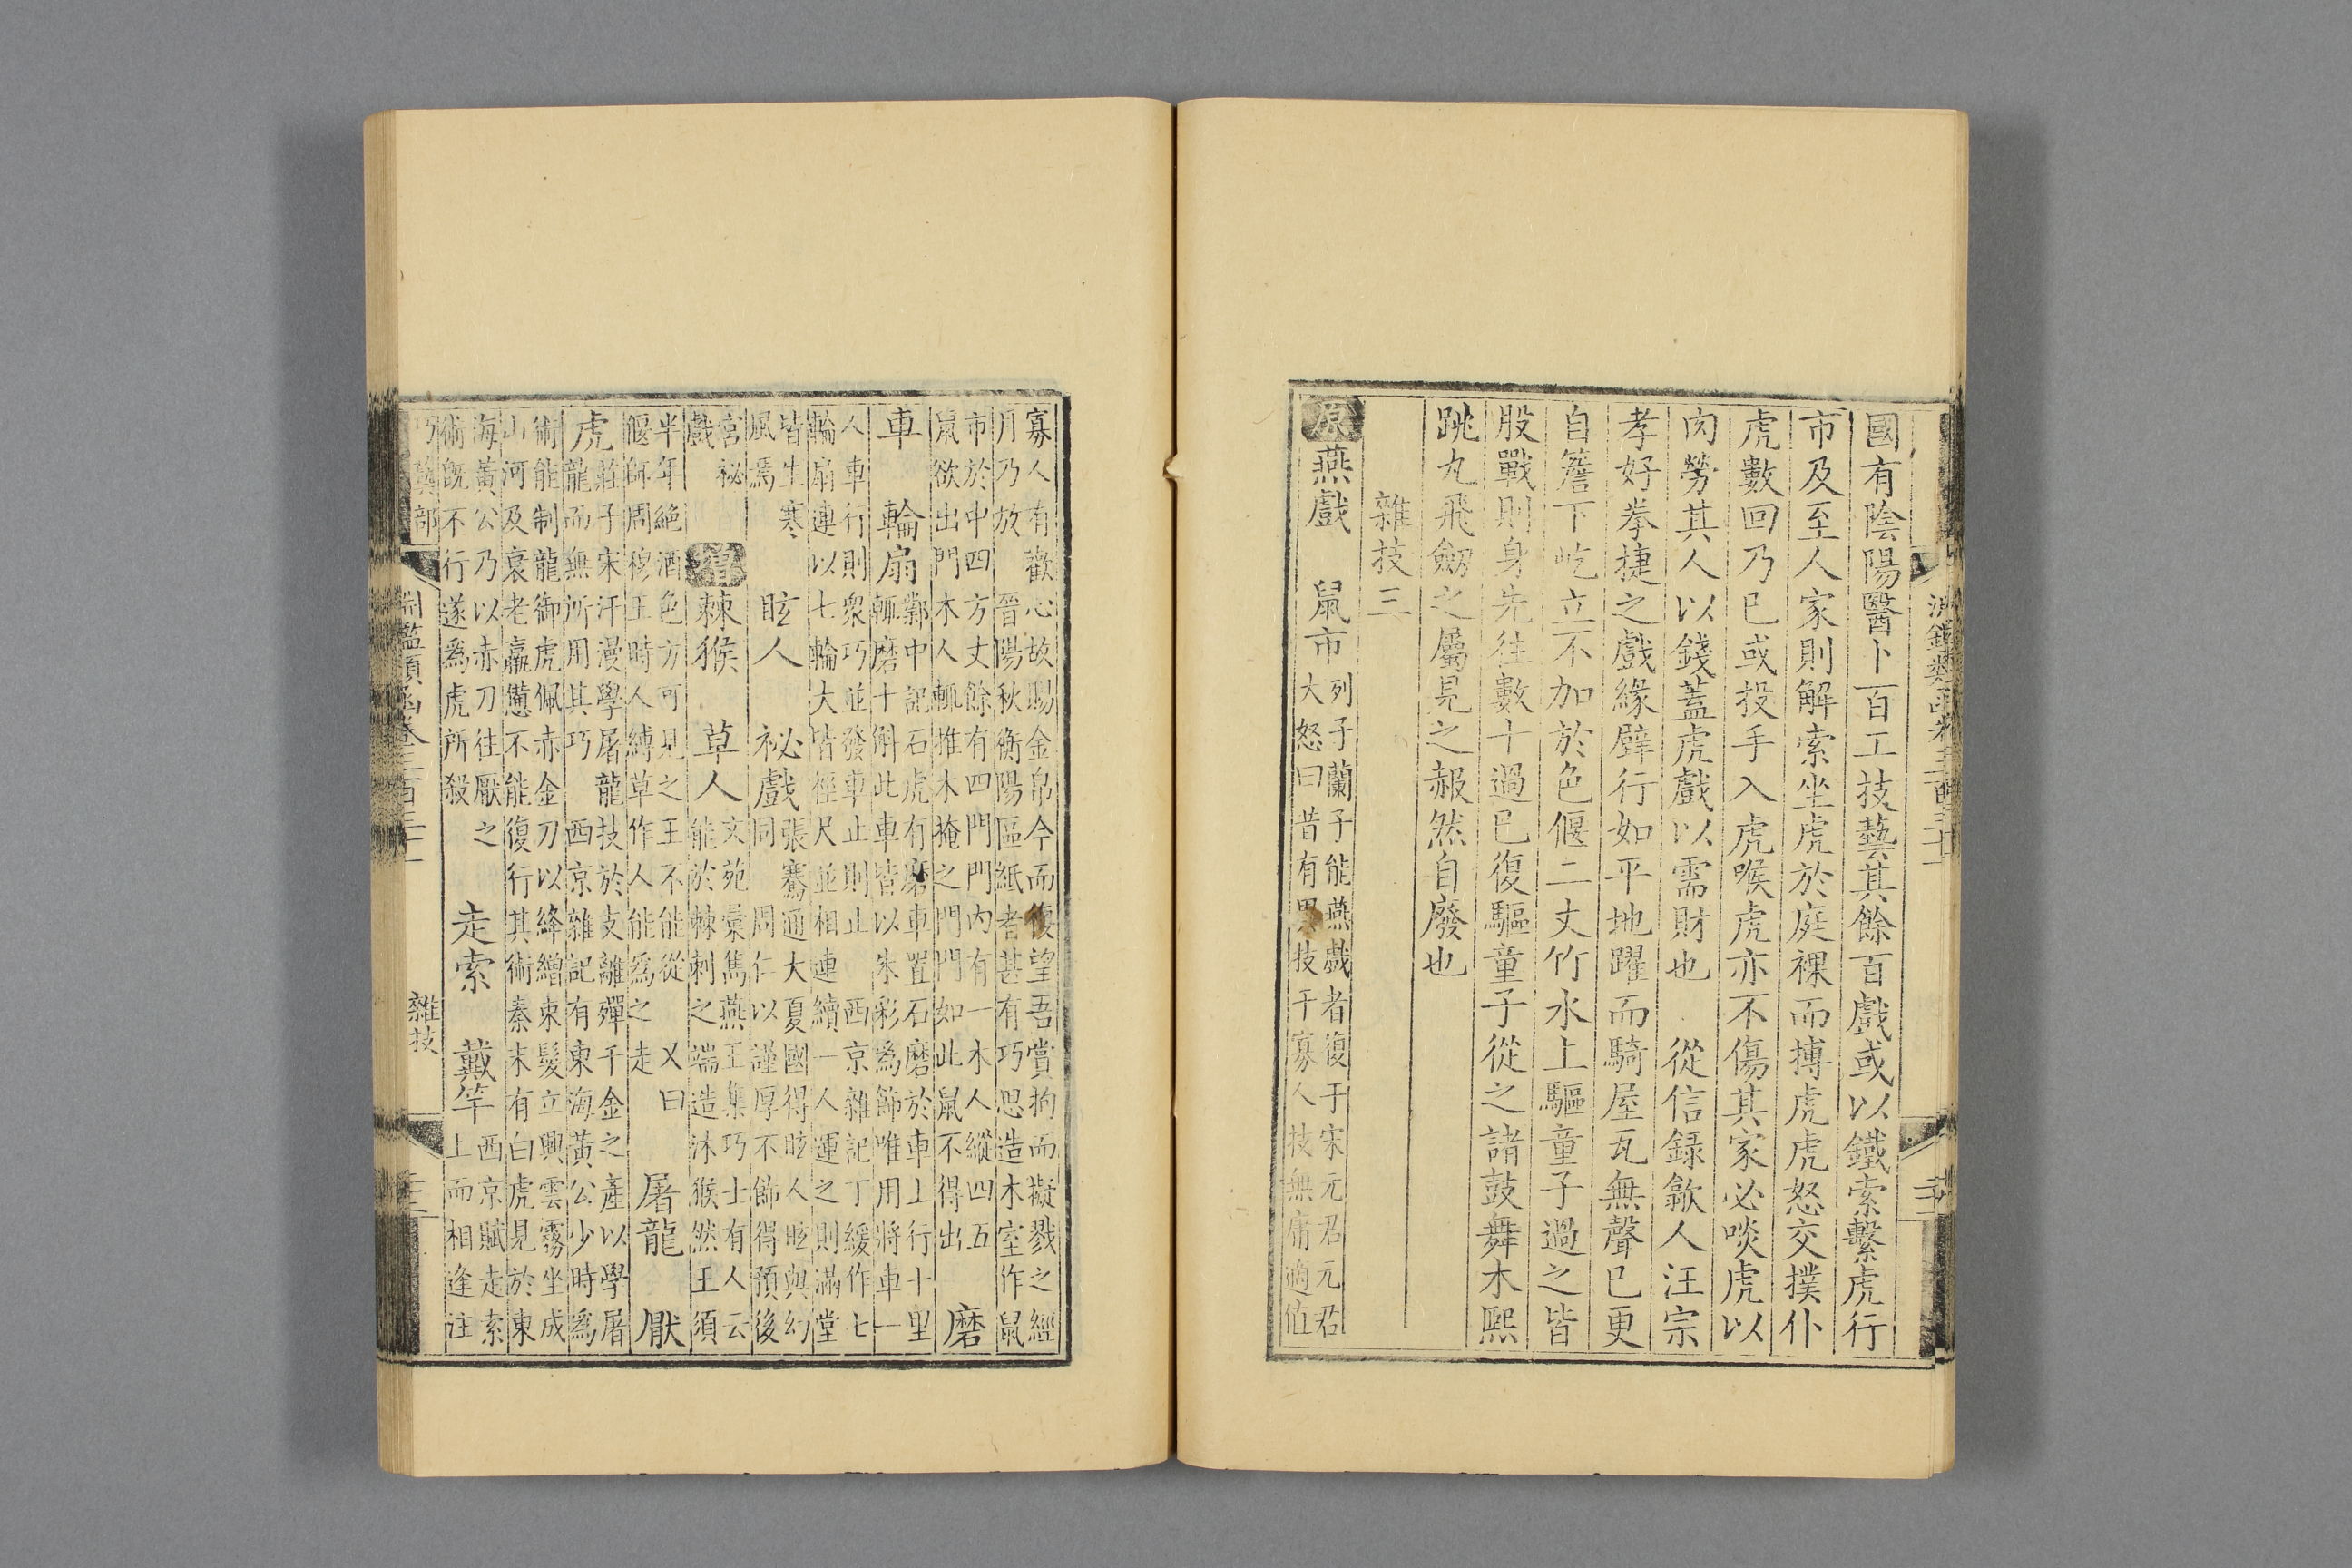 國有陰陽醫卜百工技藝其餘百戲或以鐵索繫虎行
市及至人家則解索坐虎於庭裸而搏虎虎怒交撲仆
虎數回乃已或投手入虎喉虎亦不傷其家必啖虎以
肉勞其人以錢蓋虎戲以需財也 從信錄歙人汪宗
孝好拳捷之戲緣壁行如平地躍而騎屋瓦無聲已更
自簷下屹立不加於色偃二丈竹水上驅童子過之皆
股戰則身先往數十過已復驅童子從之諸鼓舞木熙
跳丸飛劒之屬見之赧然自廢也
雜技三
原燕戲 鼠市
列子蘭子能燕戲者復干宋元君元君
大怒曰昔有異技干寡人技無庸適值
寡人有歡心故賜金帛今而復望吾賞拘而擬戮之經
月乃放 晉陽秋衡陽區紙者甚有巧思造木室作鼠
市於中四方丈餘有四門門內有一木人縱四五
鼠欲出門木人輒推木掩之門門如此鼠不得出
磨
車 輪扇
鄴中記石虎有磨車置石磨於車上行十里
輒磨十斛此車皆以朱彩為飾唯用將車一
人車行則衆巧並發車止則止 西京雜記丁緩作七
輪扇連以七輪大皆徑尺並相連續一人運之則滿堂
皆生寒
風焉
眩人 祕戲
張騫通大夏國得眩人眩與幻
同 周仁以謹厚不飾得預後
宮祕
戲
增棘猴 草人
文苑彙雋燕王集巧士有人云
能於棘刺之端造沐猴然王須
半年絕酒色方可見之王不能從 又曰
偃師周穆王時人縛草作人能為之走
屠龍 厭
虎
莊子宋汗漫學屠龍技於支離殫千金之產以學屠
龍而無所用其巧 西京雜記有東海黃公少時為
術能制龍御虎佩赤金刀以絳繒束髮立興雲霧坐成
山河及衰老羸憊不能復行其術秦末有白虎見於東
海黃公乃以赤刀往厭之
術既不行遂為虎所殺
走索 戴竿
西京賦走索
上而相逢注
雜技